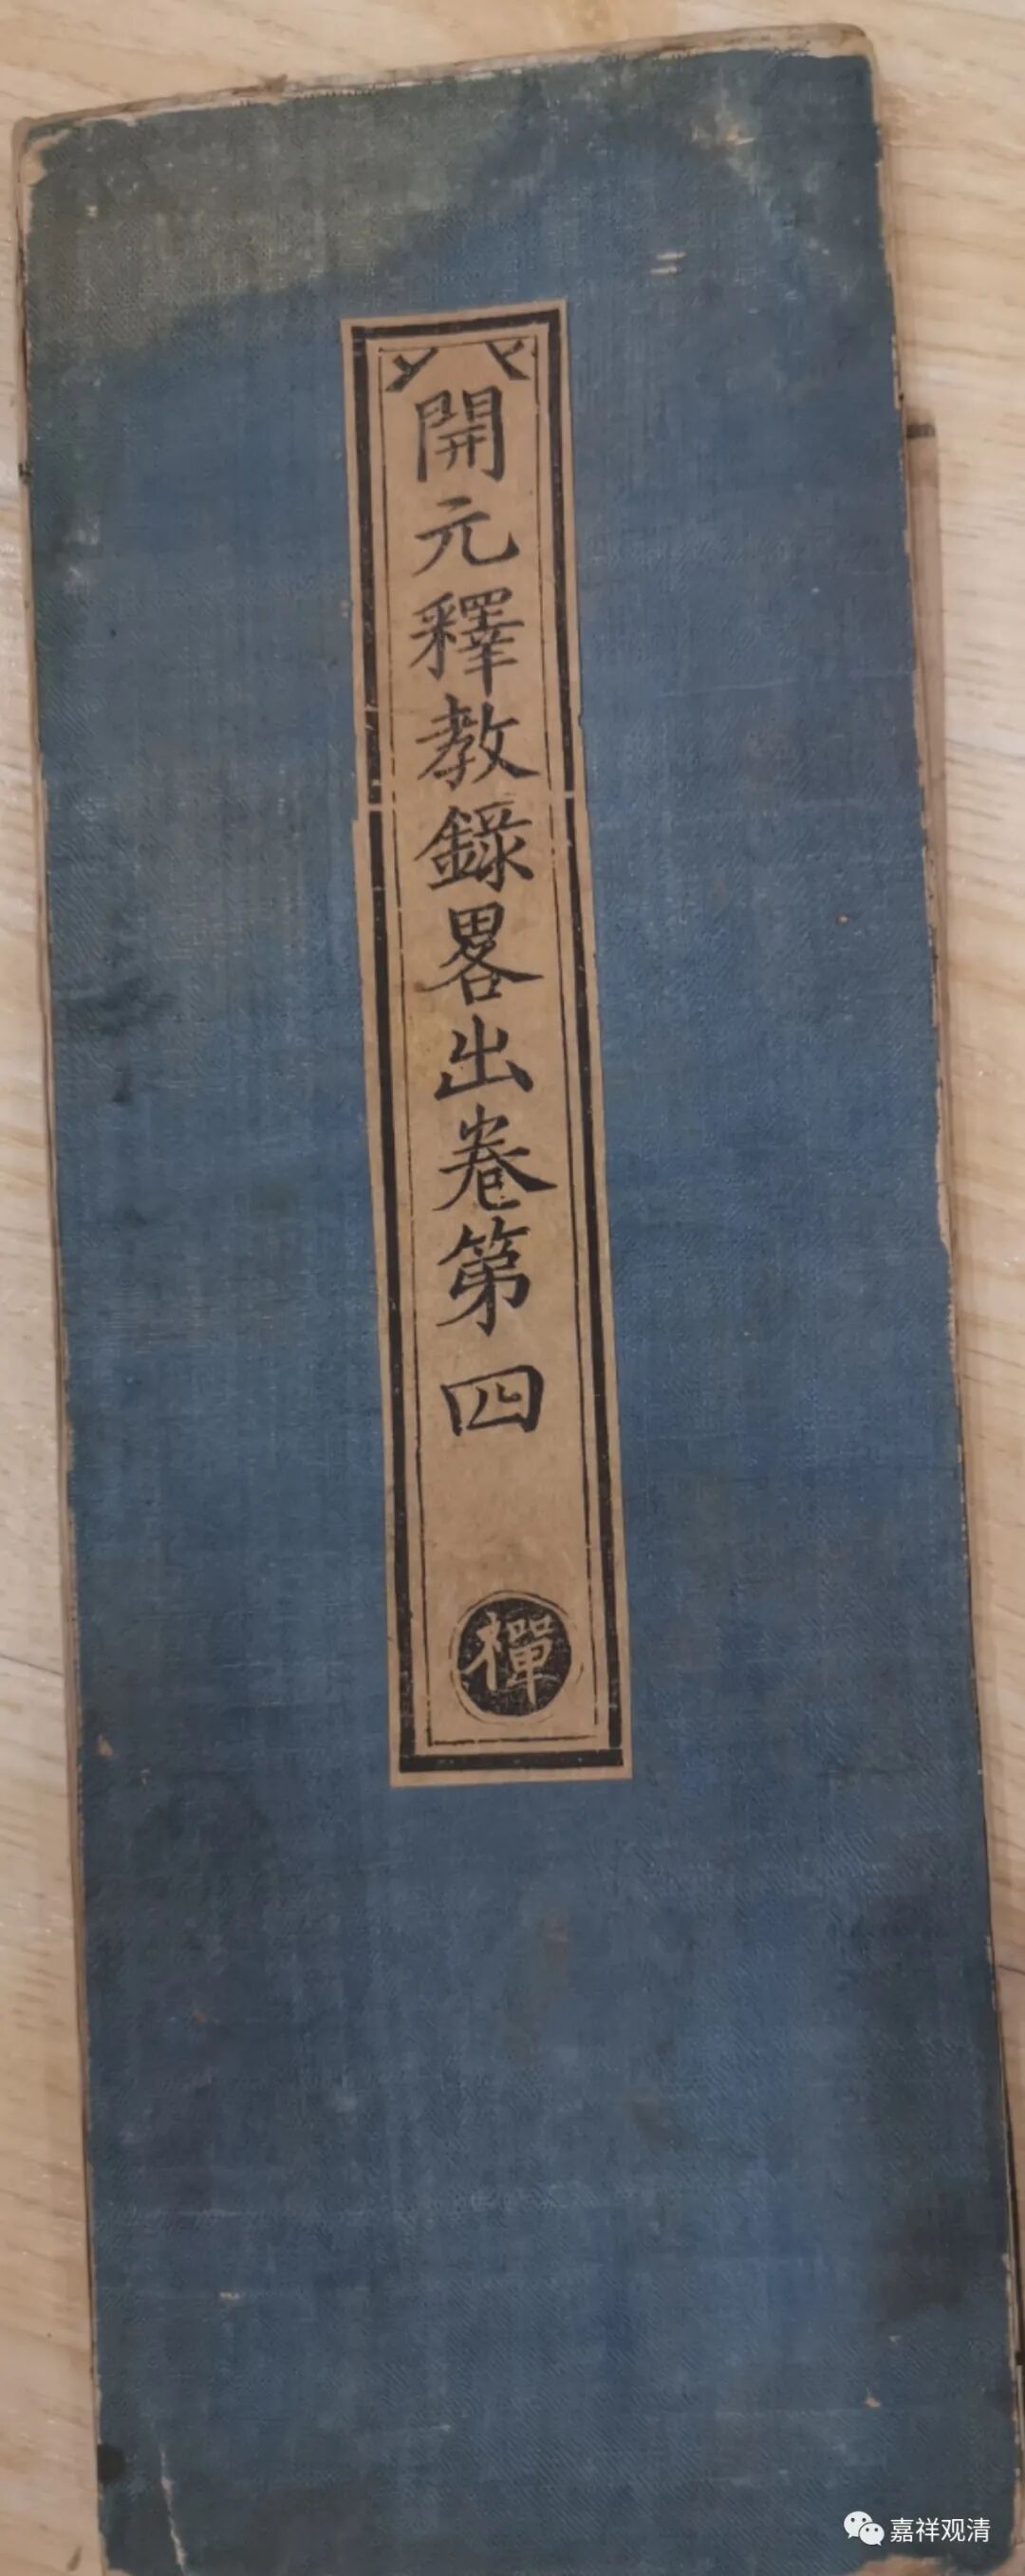 開元釋教錄畧出卷第四
禪
嘉祥观清